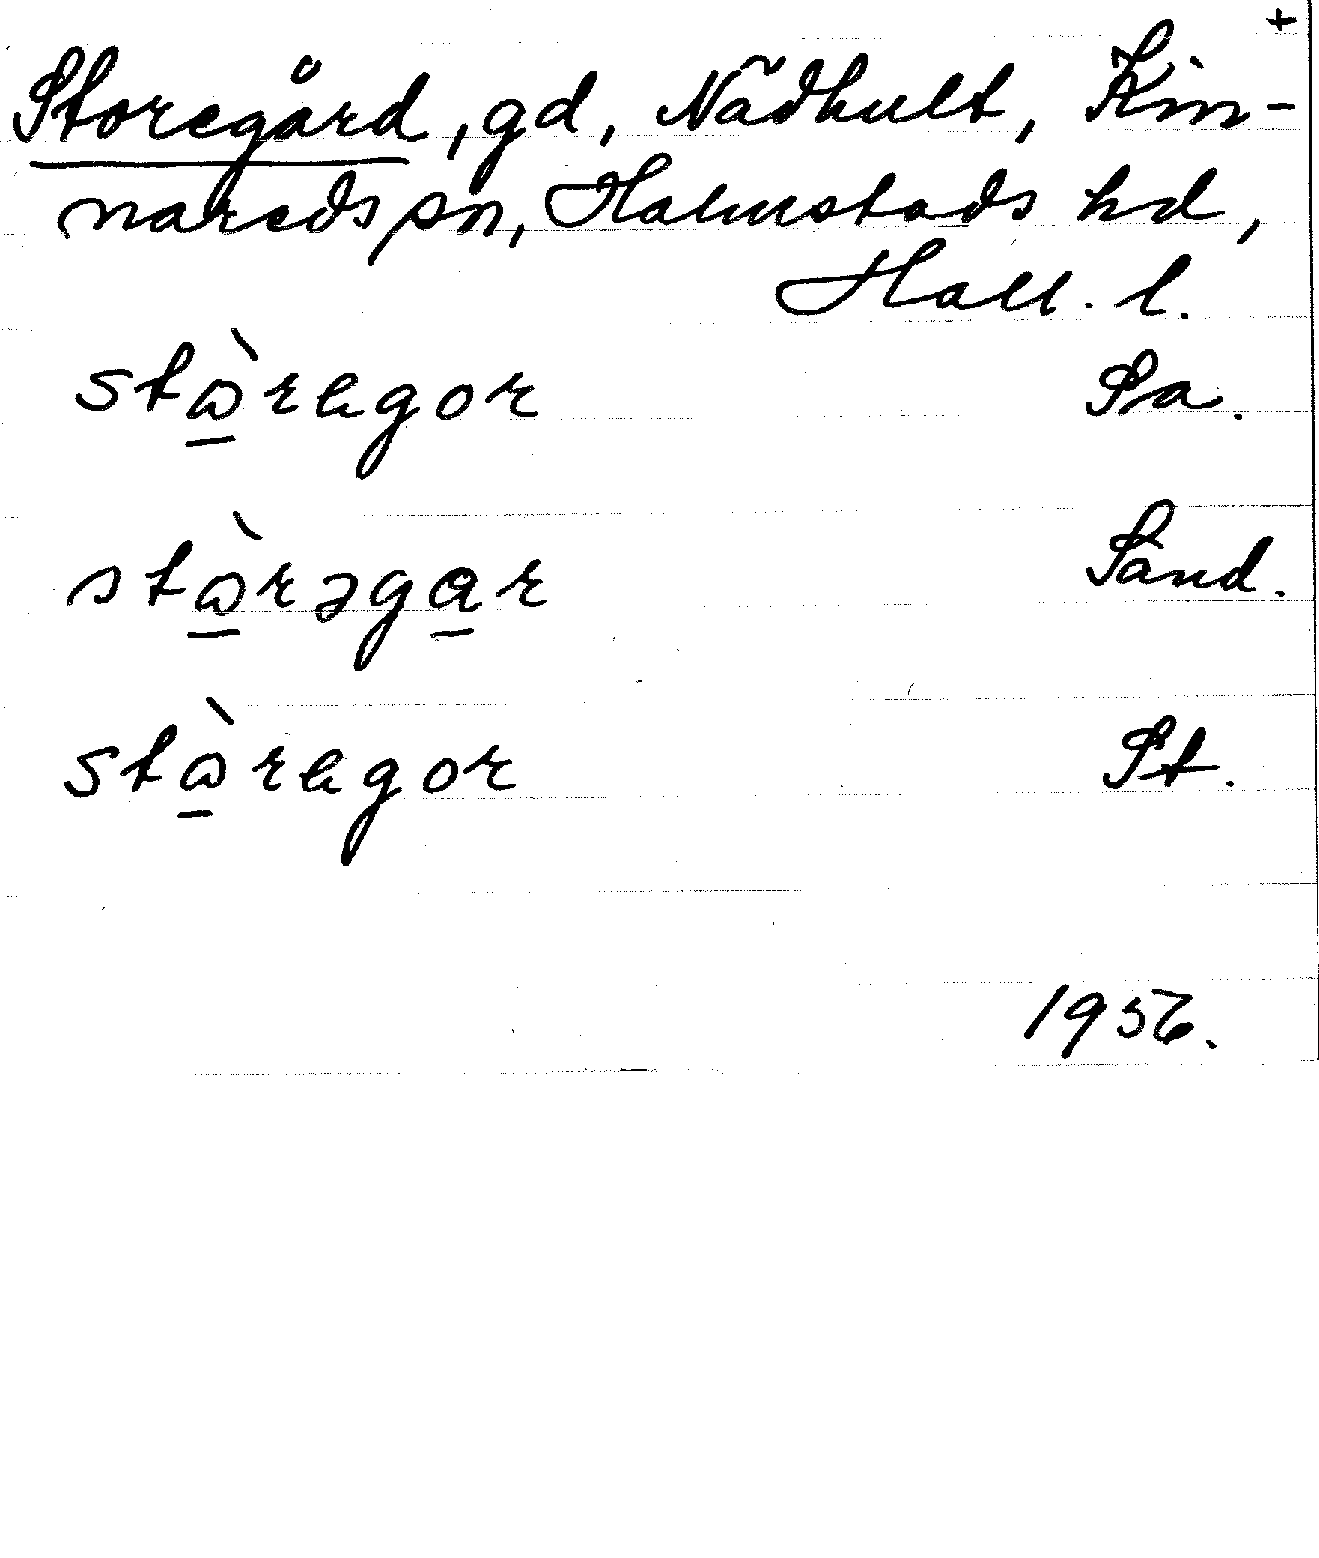 +
Storegård, gd, Nädhult, Kin-
nareds sn, Halmstads hd,
Hall. l.
stὼ̲rɐgor Sa.
stὼ̲rəga̲r Sand.
stὼ̲rɐgor St.
1956.